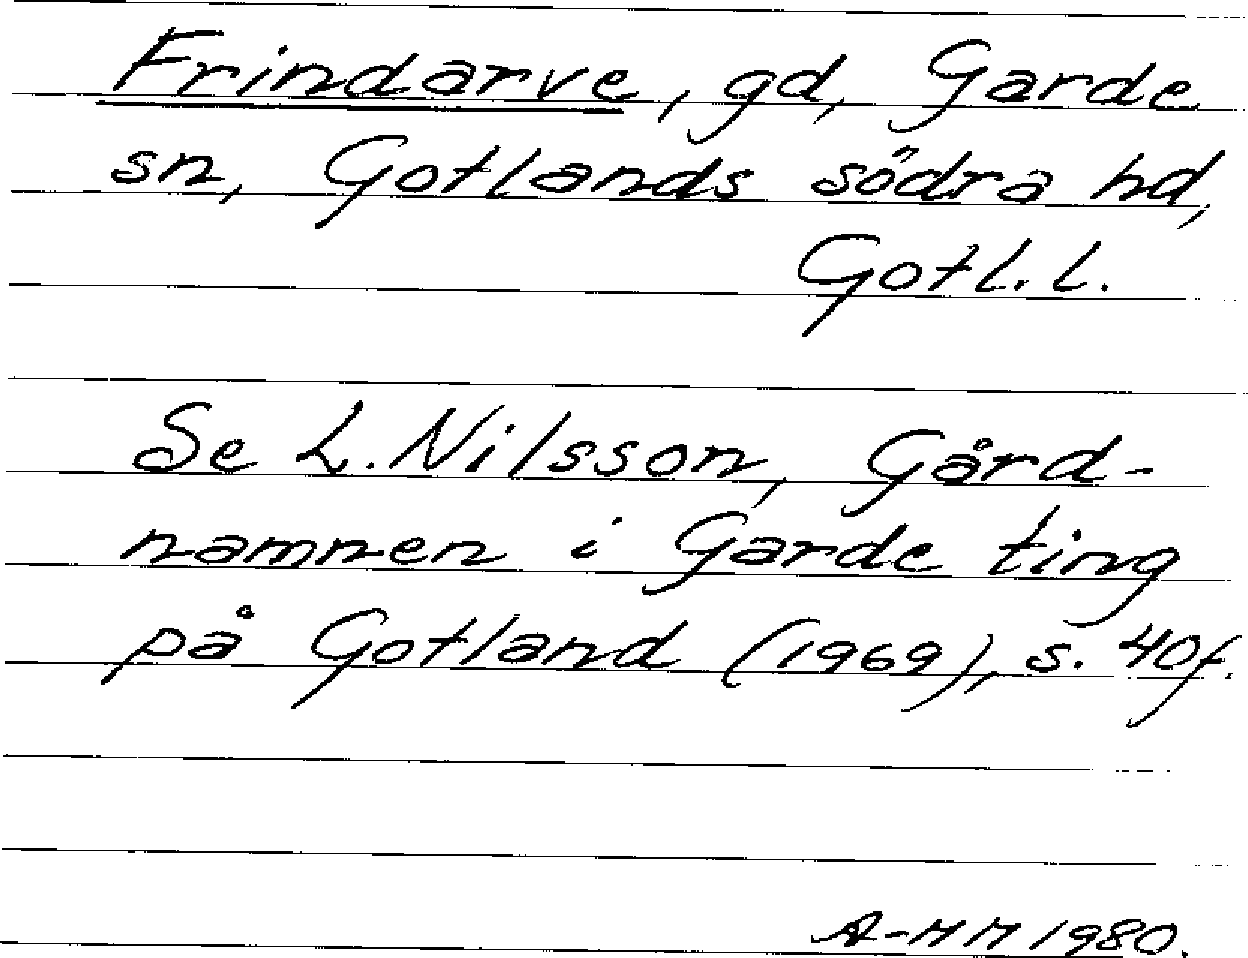 Frindarve, gd, Garde
sn, Gotlands södra hd,
Gotl. l.
Se L. Nilsson, Gård-
namnen i Garde ting
på Gotland (1969), s. 40f.
A-MM 1980.